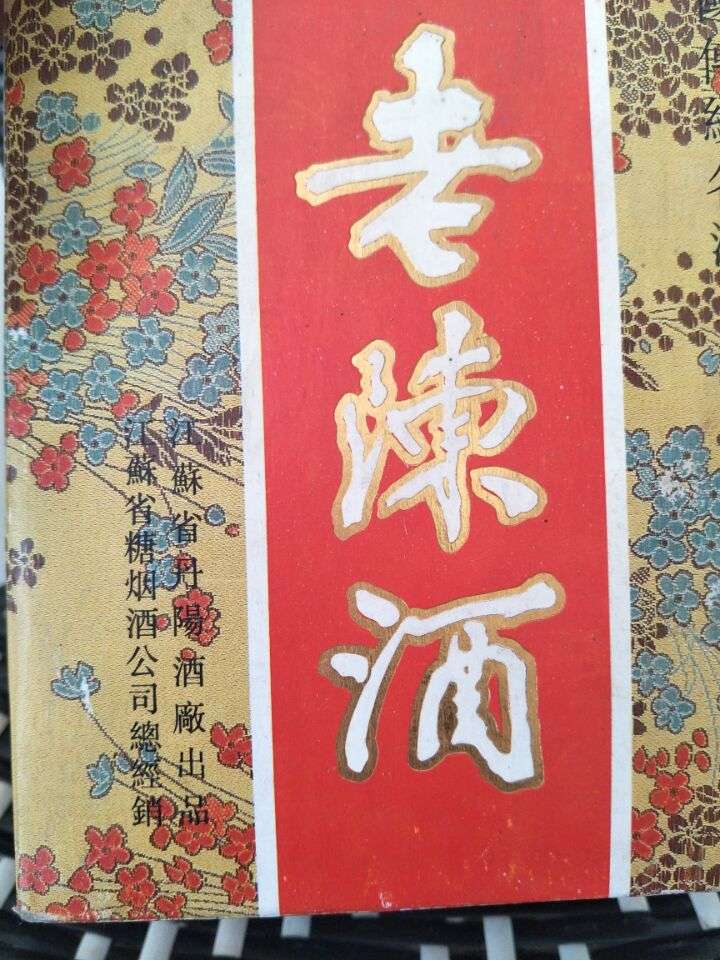 老陳酒
江蘇省丹陽酒廠出品
江蘇省糖烟酒公司總經銷